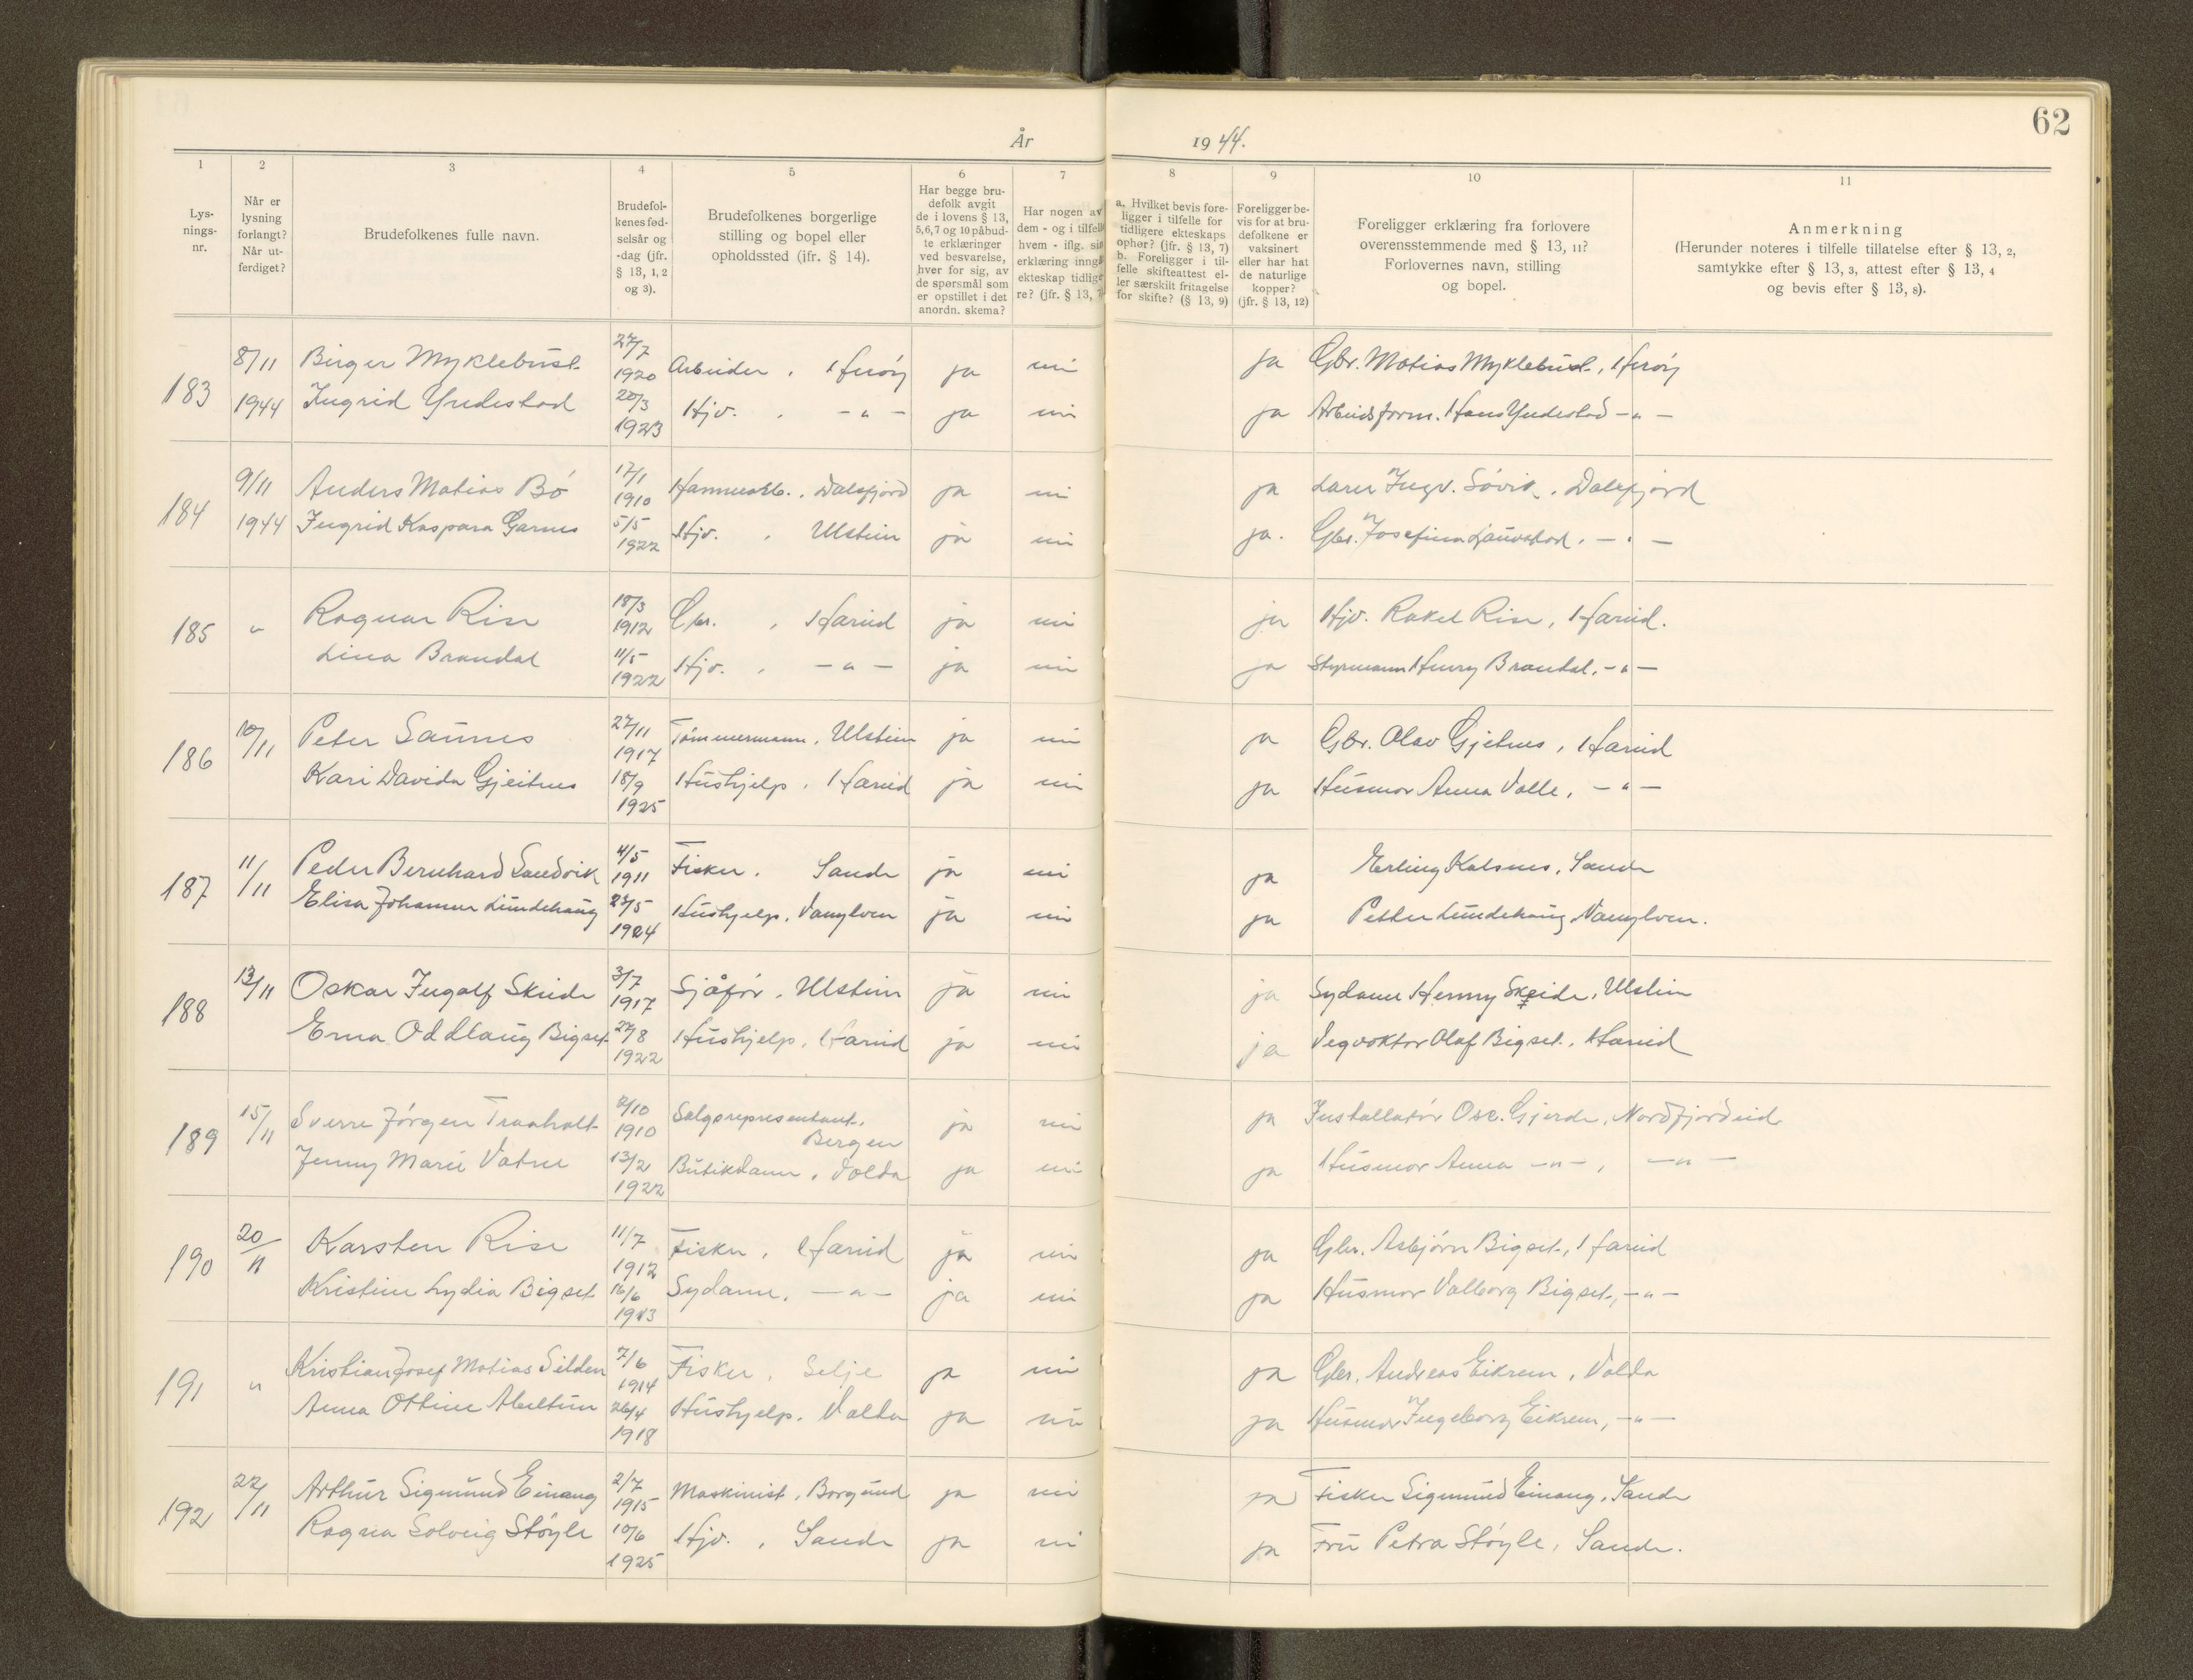 62
År 1944.
1 2 3 4 5 6 7 8 9 10 11
Lys-
nings-
nr.
Når er
lysning
forlangt?
Når ut-
ferdiget?
Brudefolkenes fulle navn.
Brudefol-
kenes fød-
selsår og
-dag (jfr.
§ 13, 1, 2
og 3).
Brudefolkenes borgerlige
stilling og bopel eller
opholdssted (jfr. § 14).
Har begge bru-
defolk avgit
de i lovens § 13,
5,6,7 og 10 påbud-
te erklæringer
ved besvarelse,
hver for sig, av
de spørsmål som
er opstillet i det
anordn. skema?
Har nogen av
dem - og i tilfelle
hvem - iflg. sin
erklæring inngå
ekteskap tidlige
re? (jfr. § 13, 7
a. Hvilket bevis fore-
ligger i tilfelle for
tidligere ekteskaps
ophør? (jfr. § 13, 7)
b. Foreligger i til-
felle skifteattest el-
ler særskilt fritagelse
for skifte? (§ 13, 9)
Foreligger be-
vis for at bru-
defolkene er
vaksinert
eller har hat
de naturlige
kopper?
(jfr. § 13, 12)
Foreligger erklæring fra forlovere
overensstemmende med § 13, 11?
Forlovernes navn, stilling
og bopel.
Anmerkning
(Herunder noteres i tilfelle tillatelse efter § 13, 2,
samtykke efter § 13, 3, attest efter § 13, 4
og bevis efter § 13, 8).
183 8/11 Birger Myklebust 27/7 1920 Arbeider, Herøy ja nei ja Gbr. Matias Myklebust, Herøy
1944 Ingrid Yndestad 20/3 1923 Hjv. , -"- ja nei ja Arbeidsform. Hans Yndestad -"-
184 9/11 Anders Matias Bö 17/1 1910 , Dalsfjord ja nei ja Lærer Ingv. Sövik, Dalsfjord
1944 Ingrid Kaspara Garnes 5/5 1922 Hjv. , Ulstein ja nei ja. Gbr. Josefina Lauvstad, -"-
185 " Ragnar Rise 18/3 1912 Gbr. , Hareid ja nei ja Hjv. Rakel Rise, Hareid.
Lina Brandal 11/5 1922 Hjv. , -"- ja nei ja Styrmann Henry Brandal, -"-
186 10/11 Peter Saunes 27/11 1917 Tömmermann, Ulstein ja nei ja Gbr. Olav Gjetnes, Hareid
Kari Davida Gjeitnes 18/9 1925 Hushjelp, Hareid ja nei ja Husmor Anna Valle, -"-
187 11/11 Peder Bernhard Sandvik 4/5 1911 Fisker. Sande ja nei ja Erling Kalsnes, Sande
Elisa Johanne Lundehaug 24/5 1924 Hushjelp, Vanylven ja nei ja Petter Lundehaug, Vanylven.
188 13/11 Oskar Ingolf Skeide 3/7 1917 Sjåför, Ulstein ja nei ja Sydame Henny Skeide, Ulstein
Erna Oddlaug Bigset 27/8 1922 Hushjelp, Hareid ja nei ja Vegvoktar Olaf Bigset, Hareid
189 15/11 Sverre Jörgen Traaholt 2/10 1910 Salgsrepresentant,
Bergen ja nei ja Installatör Osc. Gjerde, Nordfjordeid
Jenny Marie Vatne 13/2 1922 Butikdame, Volda ja nei ja Husmor Anna -"-, -"-
190 20/11 Karsten Rise 11/7 1912 Fisker, Hareid ja nei ja Gbr. Asbjörn Bigset, Hareid
Kristine Lydia Bigset 16/6 1913 Sydame, -"- ja nei ja Husmor Valborg Bigset, -"-
191 " Kristian Josef Matias Silden 7/6 1914 Fisker, Selje ja nei ja Gbr. Andreas Eikrem, Volda
Anna Ottine Aheltun 26/4 1918 Hushjelp, Volda ja nei ja Husmor Ingeborg Eikrem, -"-
192 22/11 Arthur Sigmund Einang 2/7 1915 Maskinist, Borgund ja nei ja Fisker Sigmund Einang, Sande
Ragna Solveig Støyle 10/6 1925 Hjv. , Sande ja nei ja Fru Petra Støyle, Sande.